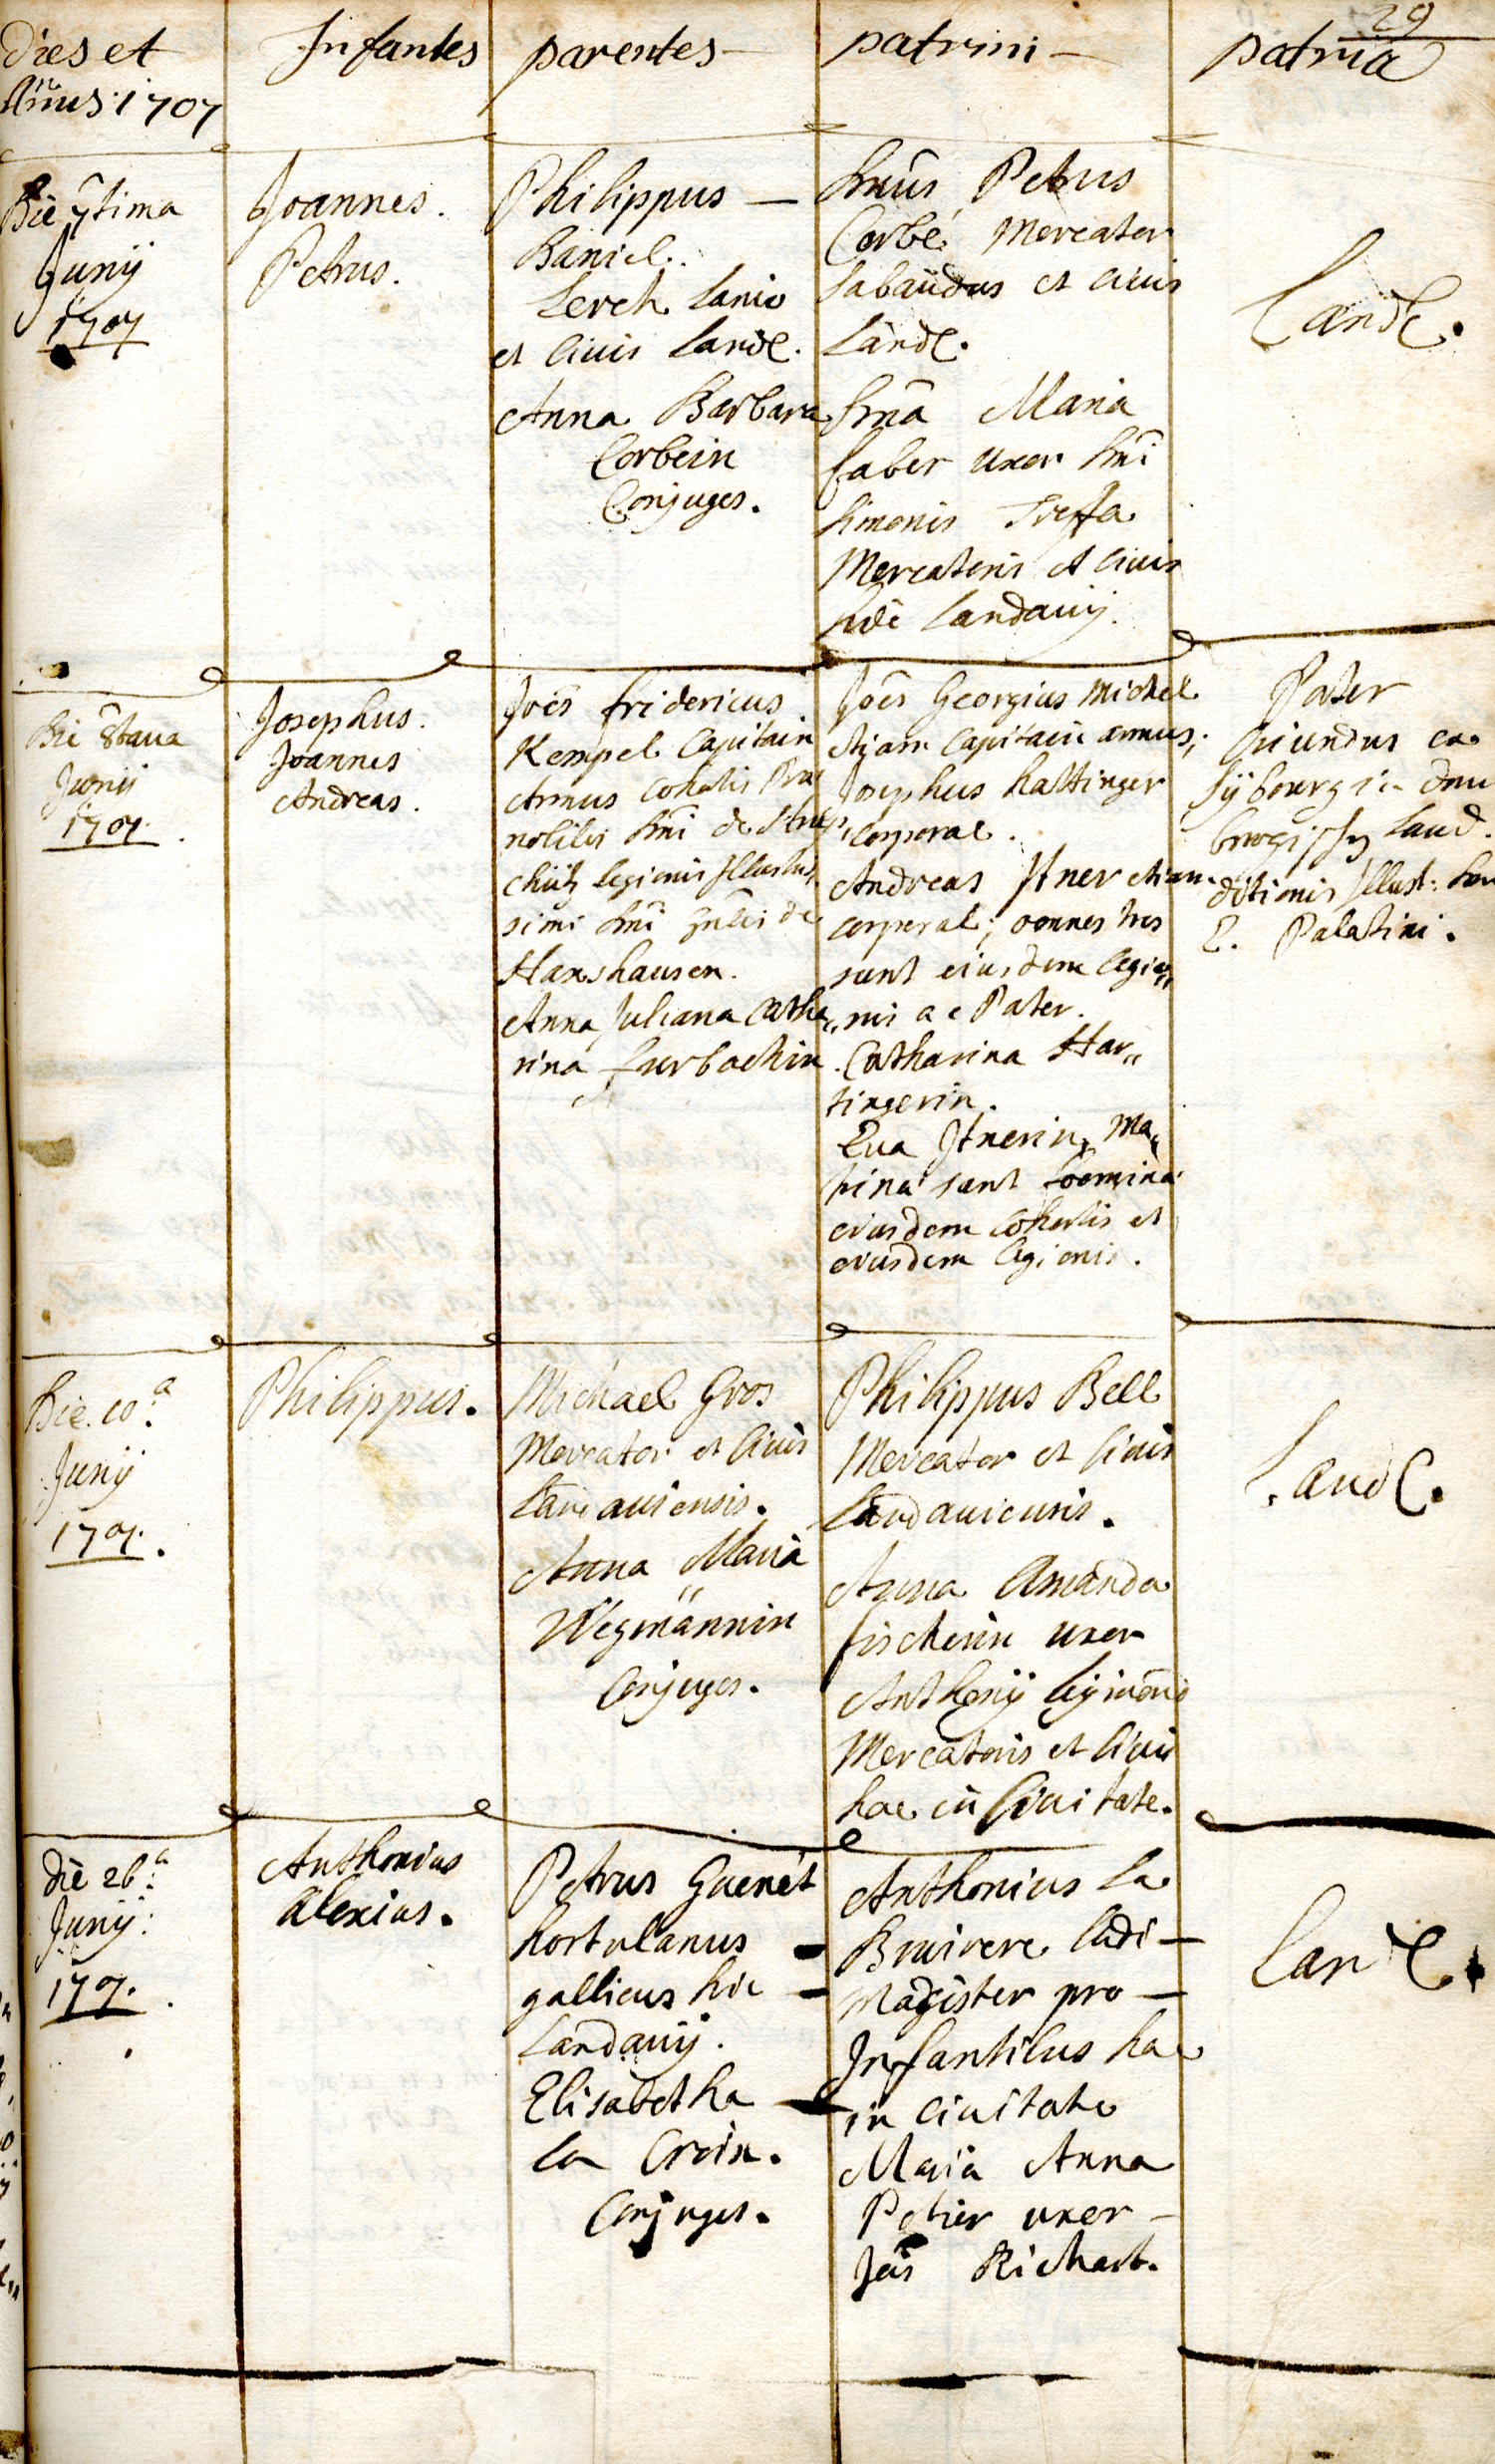 29
Dies et
Añus 1707
Infantes
parentes
patrini
patria
Die 7tima
Junÿ
1707
Joannes.
Petrus.
Philippus
Daniel
Lerch Lanio
et Civis Land.
Anna Barbara
Corbein
Conjuges.
Dnũs Petrus
Corbé Mercator
Sabaudus et Civis
Land.
Dnã Maria
faber uxor Dnĩ
Simonis Treffa
Mercatoris et Civis
Landavÿ.
Land.
Die 8tava
Junii
1707.
Josephus.
Joannes
Andreas.
Joẽs fridericus
Kempel Capitain
Armus Cohortis Præ
nobilis Dnĩ de
Legionis Illustris
simi Dnĩ de
Harshausen.
Anna Juliana Catha„
rina furbachin
Joẽs Georgius Michel
etjam Capitain armus,
Josephus Hattinger
Corporal.
Andreas Itner etiam
corporal; omnes tres
sunt eiusdem legio„
nis ac Pater.
Catharina Har„
tingerin.
Eva Itnerin, Ma„
trinæ sunt foeminæ
eiusdem Cohortis et
eiusdem legionis.
Pater
oriundus ex
ditionis Illust:
E. Palatini.
Die 10.ª
Junÿ
1707.
Philippus.
Michael Gros
Mercator et Civis
Landaviensis.
Anna Maria
Wegmännin
Conjuges.
Philippus Bell
Mercator et Civis
Landaviensis.
Anna Amanda
fischerin uxor
Anthonÿ
Mercatoris et Civis
hac in Civitate.
Land.
die 26.ª
Junÿ:
1707.
Anthonius
Alexius.
Petrus Guenét
hortulanus
gallicus hic
Landavÿ.
Elisabetha
La Croix.
Conjuges.
Anthonius La
Bruirere Ludi
Magister pro
Infantibus hac
in Civitate
Maria Anna
Potier uxor
Joĩs Richart.
Land.